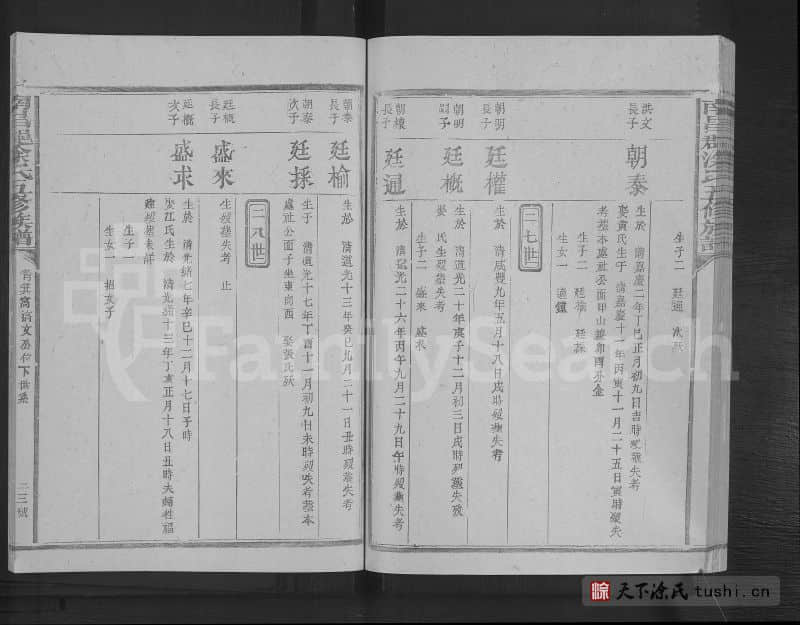 生子二 廷通 次殀
洪文
長子
朝泰
生於 清嘉慶二年丁巳正月初九日吉時歿葬失考
娶黃氏生于 清嘉慶十一年丙寅十一月二十五日寅時歿失
考墓本處社公面甲山兼卯酉分金
生子二 廷榆 廷採
生女一 適鐘
二七世
朝明
長子
廷權
生於 清咸豐九年五月十八日戌時歿葬失考
朝明
廷概
生於 清道光二十年庚子十二月初三日戌時歿葬失攷
娶 氏生歿葬失考
生子二 盛來 盛求
朝績
長子
廷通
生於 清道光二十六年丙午九月二十九日午時歿葬失考
朝泰
長子
廷榆
生於 清道光十三年癸巳九月二十一日丑時歿葬失考
朝泰
次子
廷採
生于 清道光十七年丁酉十二月初九日未時歿失考墓本
處社公面子坐東向西 娶張氏殀
二八世
廷概
長子
盛來
生歿葬失考 止
廷概
次子
盛求
生於 清光緒七年辛巳十二月十七日子時
娶江氏生於 清光緒十三年丁亥正月十八日丑時夫婦性福
生子一
生女一 招女子
下世系
二三號
FamilySearch
涂 天下涂氏 tushi.cn